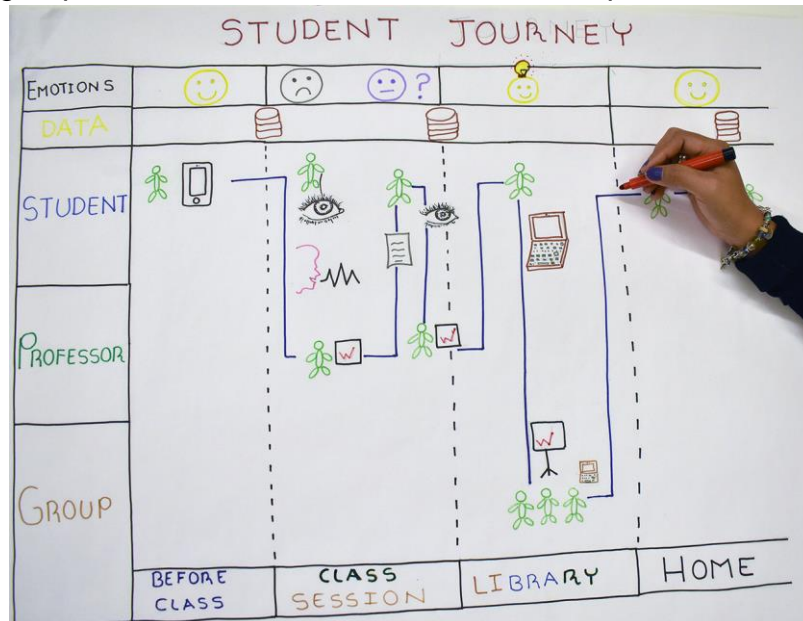 STUDENT JOURNEY
EMOTIONS
?
DATA
STUDENT
PROFESSOR
GROUP
BEFORE CLASS
CLASS SESSION
LIBRARY
HOME